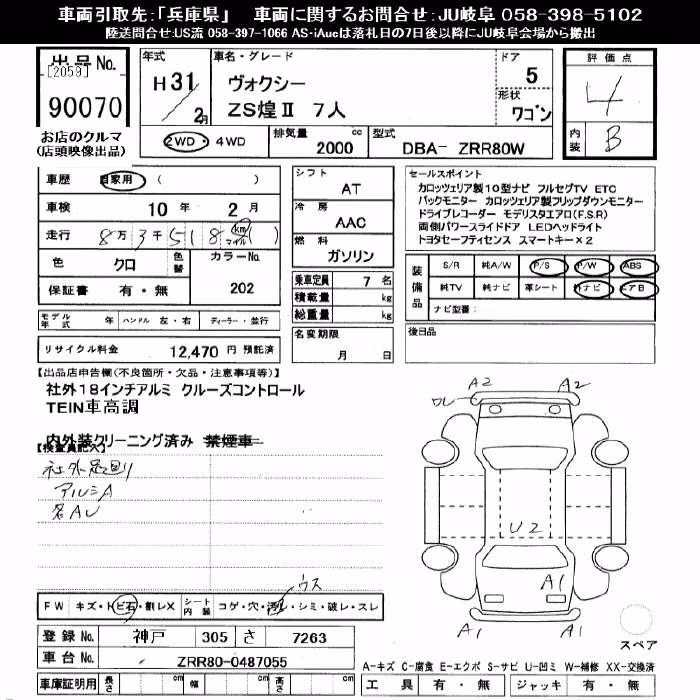 車両引取先:「兵庫県」 車両に関するお問合せ:JU岐阜 058-398-5102
陸送問合せ:US流 058-397-1066 AS-iAucは落札日の7日後以降にJU岐阜会場から搬出
出品No.
[2059]
90070
お店のクルマ
(店頭映像出品)
年式
H31/2月
車名・グレード
ヴォクシー
ZS煌Ⅱ 7人
ドア
5
形状
ワゴン
2WD・4WD
排気量
2000 cc
型式
DBA- ZRR80W
評価点
4
内装
B
車歴 自家用 ( )
車検 10年 2月
走行 8万3千518 km マイル ( )
色 クロ 色替
カラーNo.
202
保証書 有・無
モデル年式 年 ハンドル 左・右 ディーラー・並行
リサイクル料金 12,470 円 預託済
シフト
AT
冷房
AAC
燃料
ガソリン
乗車定員 7 名
積載量 kg
総重量 kg
名変期限
月 日
セールスポイント
カロッツェリア製10型ナビ フルセグTV ETC
バックモニター カロッツェリア製フリップダウンモニター
ドライブレコーダー モデリスタエアロ(F.S.R)
両側パワースライドドア LEDヘッドライト
トヨタセーフティセンス スマートキー×2
装備品
S/R 純A/W P/S P/W ABS
純TV 純ナビ 革シート 外ナビ エアB
ナビ型番:
後日品
【出品店申告欄(不良箇所・欠品・注意事項等)】
社外18インチアルミ クルーズコントロール
TEIN車高調
内外装クリーニング済み 禁煙車
【検査員記入】
社外足回り
アルミA
各AU
A2 A2
ワレ
U2
A1
A1 A1
スペア
ウス
FW キズ・トビ石・割レX シート内装 コゲ・穴・汚レ・シミ・破レ・スレ
登録No. 神戸 305 さ 7263
車台No. ZRR80-0487055
車庫証明用 長さ cm 幅 cm 高さ cm
A-キズ C-腐食 E-エクボ S-サビ U-凹ミ W-補修 XX-交換済
工具 有・無 ジャッキ 有・無